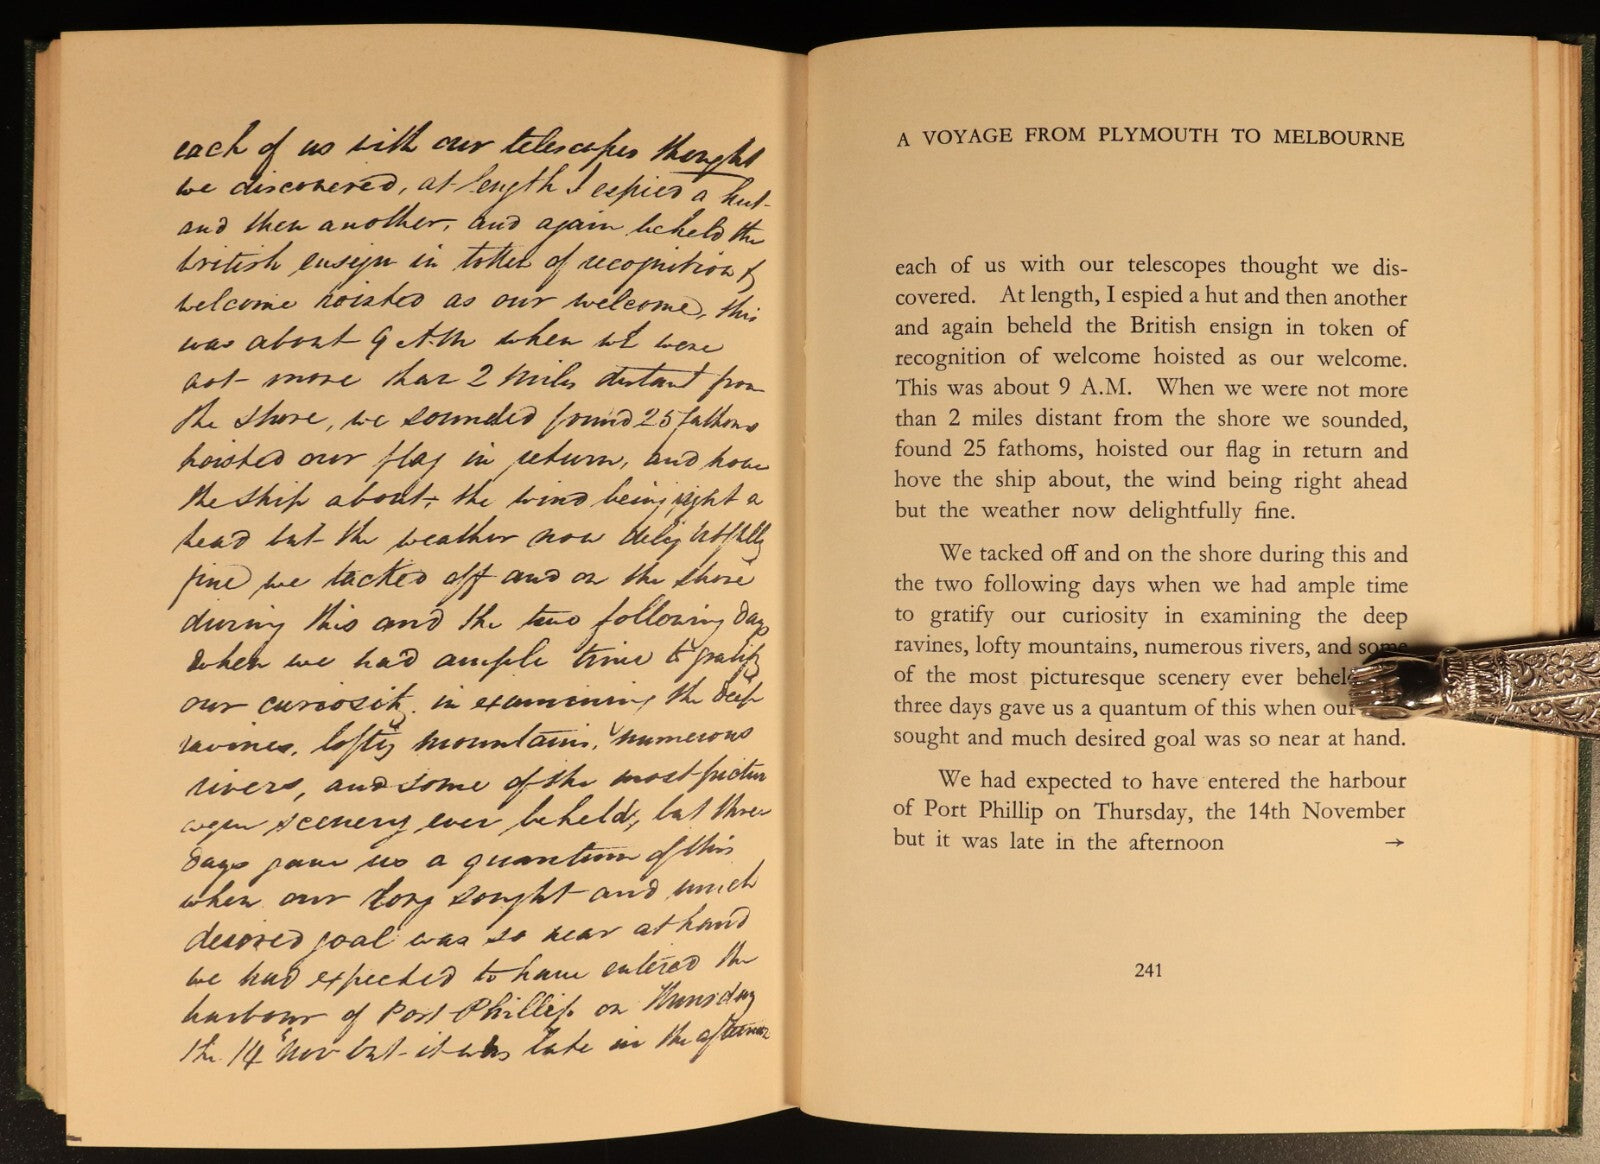 each of us with our telescopes thought
we discovered, at length I espied a hut
and then another, and again beheld the
british ensign in token of recognition of
welcome hoisted as our welcome, this
was about 9 A.M when we were
not more than 2 miles distant from
the shore, we sounded found 25 fathoms
hoisted our flag in return, and hove
the ship about, the wind being right a
head but the weather now delightfully
fine we tacked off and on the shore
during this and the two following days
when we had ample time to gratify
our curiosity in examining the deep
ravines, lofty mountains, numerous
rivers, and some of the most pictur
esque scenery ever beheld, but three
days gave us a quantum of this
when our long sought and much
desired goal was so near at hand
we had expected to have entered the
harbour of Port Phillip on Thursday
the 14 Nov but it was late in the afternoon
A VOYAGE FROM PLYMOUTH TO MELBOURNE
each of us with our telescopes thought we dis-
covered. At length, I espied a hut and then another
and again beheld the British ensign in token of
recognition of welcome hoisted as our welcome.
This was about 9 A.M. When we were not more
than 2 miles distant from the shore we sounded,
found 25 fathoms, hoisted our flag in return and
hove the ship about, the wind being right ahead
but the weather now delightfully fine.
We tacked off and on the shore during this and
the two following days when we had ample time
to gratify our curiosity in examining the deep
ravines, lofty mountains, numerous rivers, and some
of the most picturesque scenery ever behel
three days gave us a quantum of this when our
sought and much desired goal was so near at hand.
We had expected to have entered the harbour
of Port Phillip on Thursday, the 14th November
but it was late in the afternoon →
241